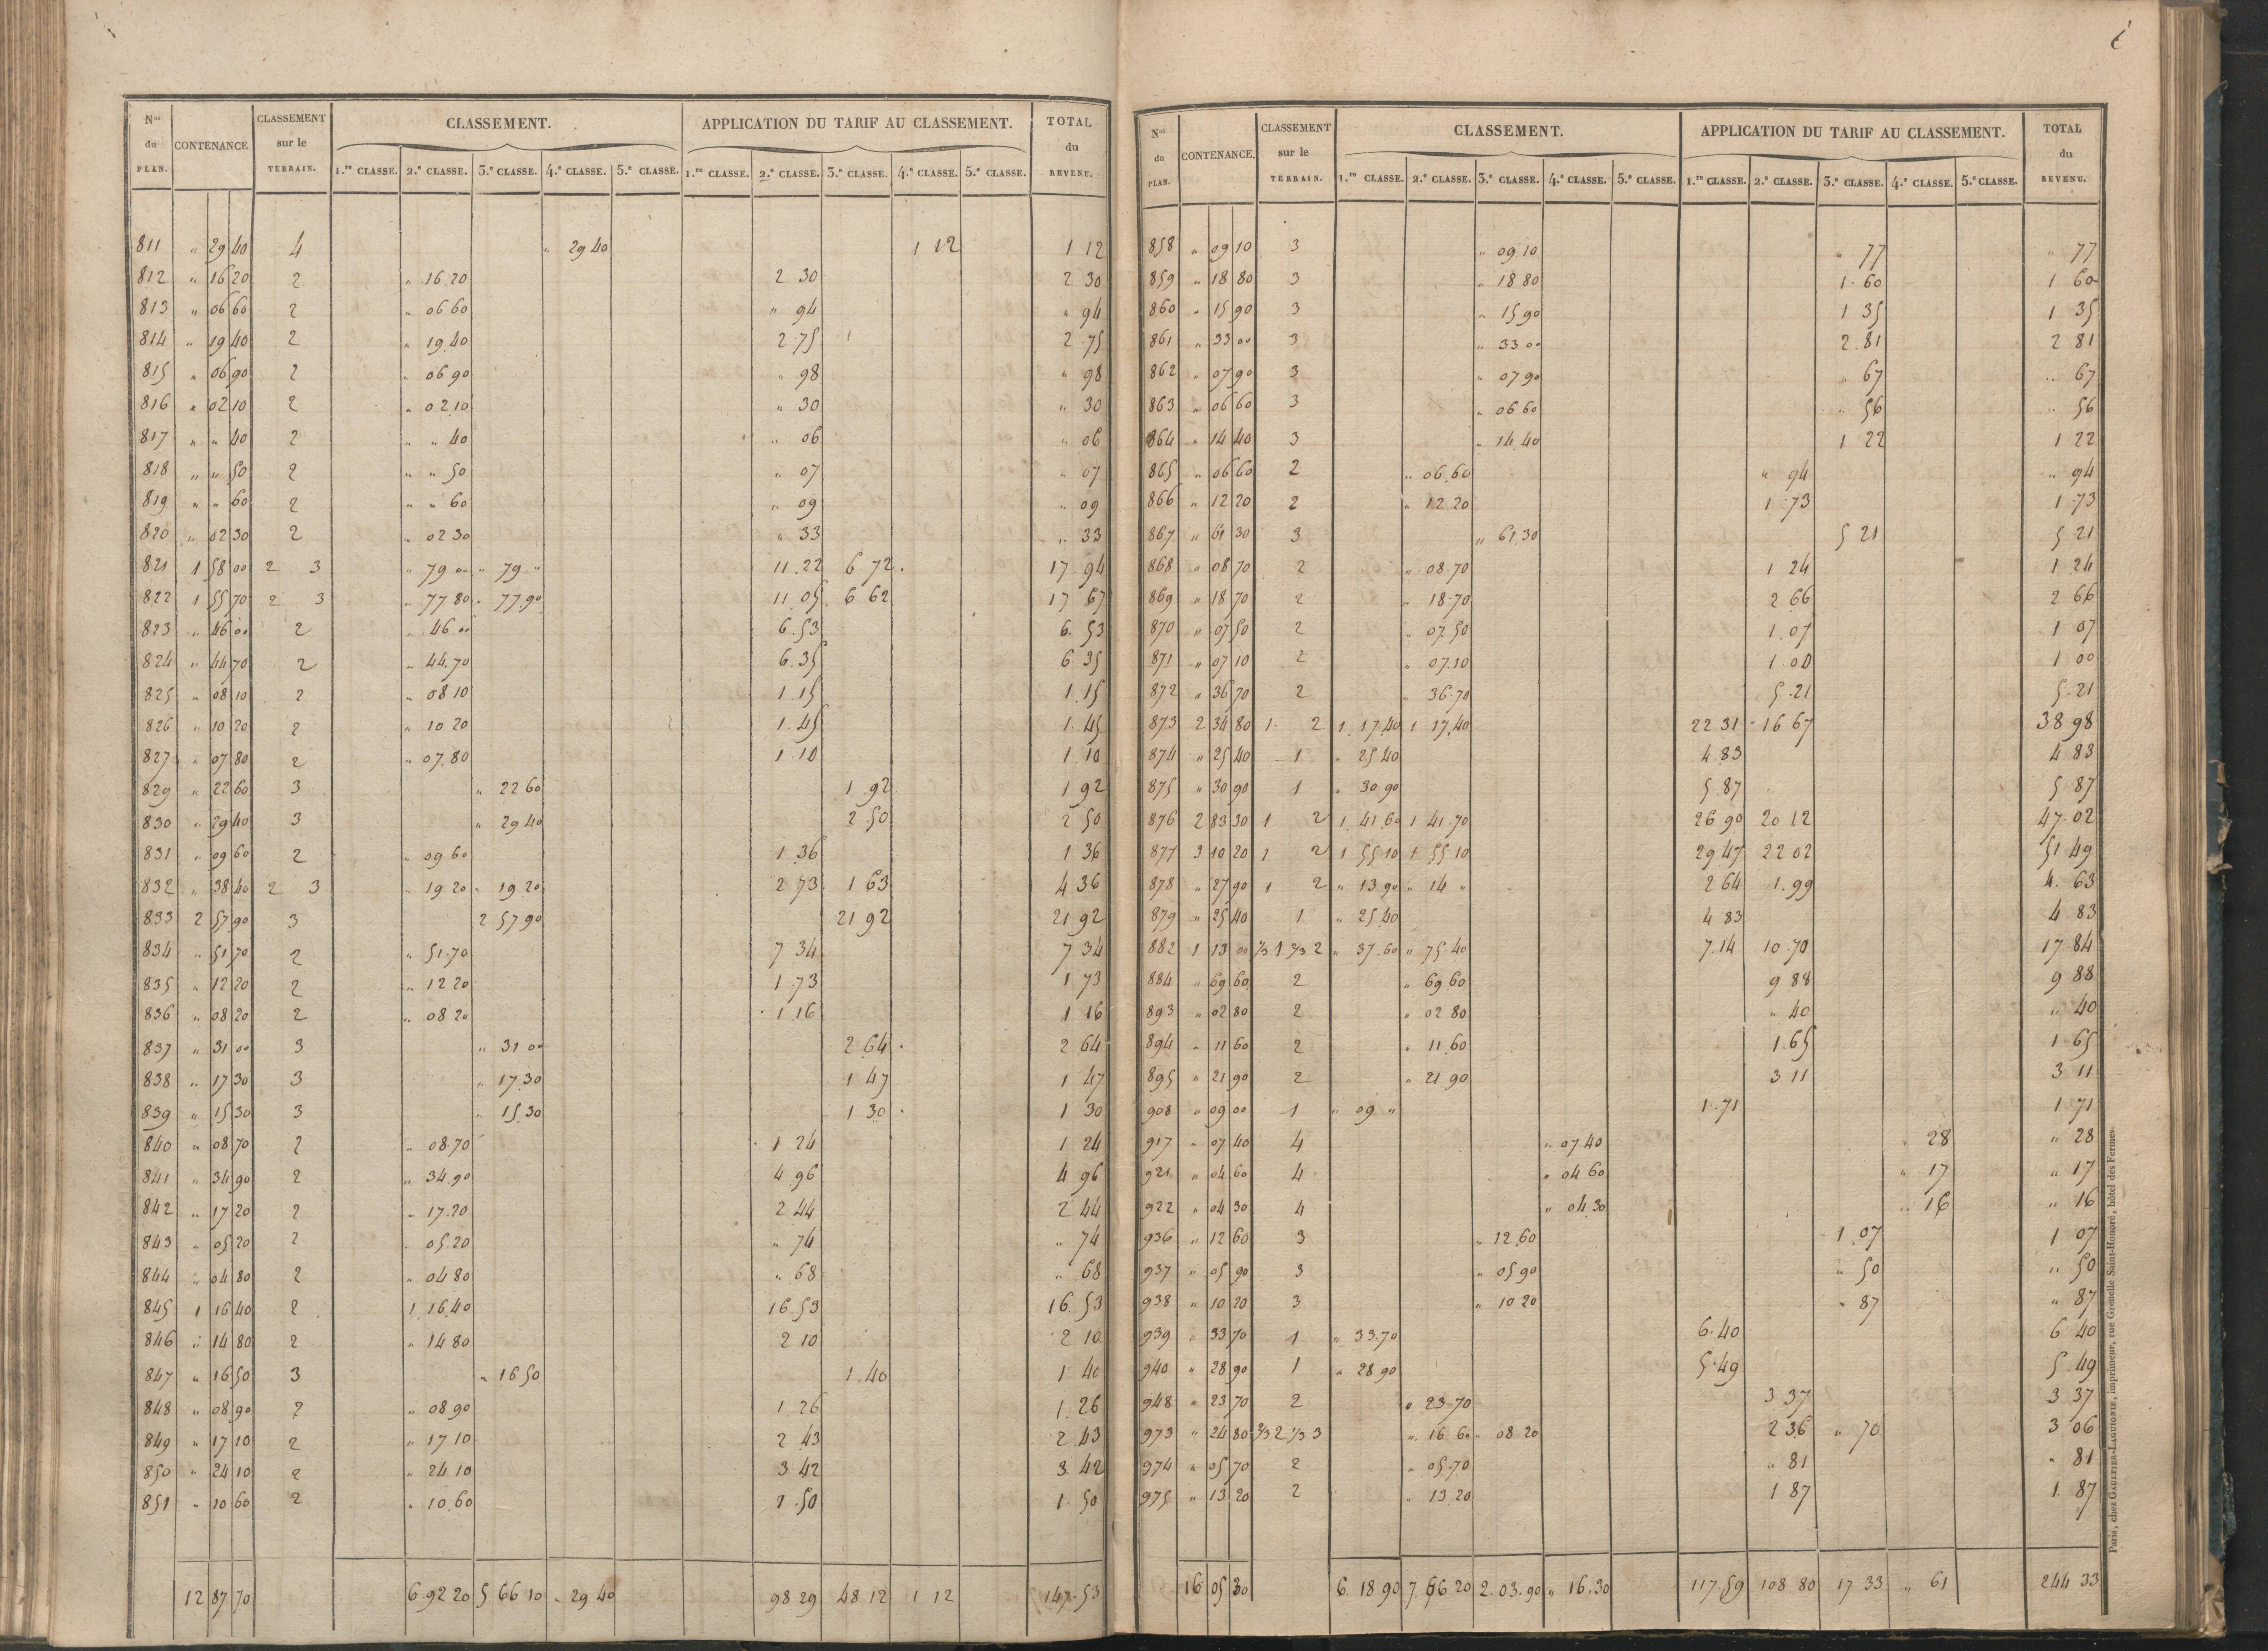 N.os du PLAN. CONTENANCE. CLASSEMENT sur le TERRAIN. CLASSEMENT. APPLICATION DU TARIF AU CLASSEMENT. TOTAL du REVENU.
1.re CLASSE. 2.e CLASSE. 3.e CLASSE. 4.e CLASSE. 5.e CLASSE. 1.re CLASSE. 2.e CLASSE. 3.e CLASSE. 4.e CLASSE. 5.e CLASSE.
811 " 29 40 4 " 29 40 1 12 1 12
812 " 16 20 2 " 16.20 2 30 2 30
813 " 06 60 2 " 06 60 " 94 " 94
814 " 19 40 2 " 19.40 2.75 2.75
815 " 06 90 2 " 06 90 " 98 " 98
816 " 02 10 2 " 02.10 " 30 " 30
817 " " 40 2 " " 40 " 06 " 06
818 " " 50 2 " " 50 " 07 " 07
819 " " 60 2 " " 60 " 09 " 09
820 " 02 30 2 " 02 30 " 33 " 33
821 1 58 00 2 3 " 79 00 " 79 " 11.22 6 72 17.94
822 1 55 70 2 3 " 77 80 " 77.90 11.05 6 62 17 67
823 " 46 00 2 " 46 00 6.53 6.53
824 " 44 70 2 " 44.70 6.35 6 35
825 " 08 10 2 " 08 10 1.15 1.15
826 " 10 20 2 " 10 20 1.45 1.45
827 " 07 80 2 " 07.80 1.10 1.10
829 " 22 60 3 " 22 60 1.92 1 92
830 " 29 40 3 " 29 40 2.50 2 50
831 " 09 60 2 " 09 60 1.36 1 36
832 " 38 40 2 3 " 19 20 " 19 20 2 73 1 63 4 36
833 2 57 90 3 2 57 90 21 92 21 92
834 " 51 70 2 " 51.70 7 34 7 34
835 " 12 20 2 " 12 20 1.73 1 73
836 " 08 20 2 " 08 20 1.16 1 16
837 " 31 00 3 " 31 00 2 64 2 64
838 " 17 30 3 " 17.30 1 47 1 47
839 " 15 30 3 " 15.30 1 30 1 30
840 " 08 70 2 " 08.70 1 24 1 24
841 " 34 90 2 " 34.90 4.96 4 96
842 " 17 20 2 " 17.20 2 44 2 44
843 " 05 20 2 " 05.20 " 74 " 74
844 " 04 80 2 " 04 80 " 68 " 68
845 1 16 40 2 1.16.40 16.53 16 53
846 " 14 80 2 " 14 80 2 10 2 10
847 " 16 50 3 " 16 50 1.40 1 40
848 " 08 90 2 " 08 90 1 26 1.26
849 " 17 10 2 " 17 10 2 43 2 43
850 " 24 10 2 " 24 10 3 42 3 42
851 " 10 60 2 " 10.60 1.50 1 50
12 87 70 6.92 20 5 66 10 " 29 40 98 29 48 12 1 12 147.53
N.os du PLAN. CONTENANCE. CLASSEMENT sur le TERRAIN. CLASSEMENT. APPLICATION DU TARIF AU CLASSEMENT. TOTAL du REVENU.
1.re CLASSE. 2.e CLASSE. 3.e CLASSE. 4.e CLASSE. 5.e CLASSE. 1.re CLASSE. 2.e CLASSE. 3.e CLASSE. 4.e CLASSE. 5.e CLASSE.
858 " 09 10 3 " 09 10 " 77 " 77
859 " 18 80 3 " 18 80 1.60 1 60
860 " 15 90 3 " 15 90 1 35 1 35
861 " 33 00 3 " 33 00 2.81 2 81
862 " 07 90 3 " 07 90 " 67 " 67
863 " 06 60 3 " 06 60 " 56 " 56
864 " 14 40 3 " 14.40 1 22 1 22
865 " 06 60 2 " 06.60 " 94 " 94
866 " 12 20 2 " 12.20 1.73 1.73
867 " 61 30 3 " 61.30 5 21 5 21
868 " 08 70 2 " 08.70 1 24 1 24
869 " 18 70 2 " 18.70 2 66 2 66
870 " 07 50 2 " 07.50 1.07 1 07
871 " 07 10 2 " 07.10 1.00 1 00
872 " 36 70 2 " 36.70 5.21 5.21
873 2 34 80 1 2 1.17.40 1 17.40 22 31 16 67 38 98
874 " 25 40 1 " 25 40 4 83 4 83
875 " 30 90 1 " 30 90 5.87 5 87
876 2 83 30 1 2 1.41.60 1 41.70 26 90 20 12 47.02
877 3 10 20 1 2 1 55 10 1 55 10 29.47 22 02 51 49
878 " 27 90 1 2 " 13.90 " 14 " 2 64 1.99 4.63
879 " 25 40 1 " 25.40 4 83 4 83
882 1 13 00 1/3 1 2/3 2 " 37.60 " 75.40 7.14 10.70 17.84
884 " 69 60 2 " 69 60 9 88 9 88
893 " 02 80 2 " 02 80 " 40 " 40
894 " 11 60 2 " 11.60 1.65 1.65
895 " 21 90 2 " 21.90 3 11 3 11
908 " 09 00 1 " 09 " 1.71 1.71
917 " 07 40 4 " 07.40 " 28 " 28
921 " 04 60 4 " 04 60 " 17 " 17
922 " 04 30 4 " 04.30 " 16 " 16
936 " 12 60 3 " 12.60 1.07 1 07
937 " 05 90 3 " 05 90 " 50 " 50
938 " 10 20 3 " 10 20 " 87 " 87
939 " 33 70 1 " 33.70 6.40 6 40
940 " 28 90 1 " 28 90 5.49 5.49
948 " 23 70 2 " 23.70 3 37 3 37
973 " 24 80 2/3 2 1/3 3 " 16 60 " 08 20 2 36 " 70 3 06
974 " 05 70 2 " 05.70 " 81 " 81
975 " 13 20 2 " 13 20 1 87 1.87
16 05 30 6.18 90 7.66 20 2.03.90 " 16.30 117.59 108 80 17 33 " 61 244 33
Paris, chez GAULTIER-LAGUIONIE, imprimeur, rue Grenelle Saint-Honoré, hôtel des Fermes.